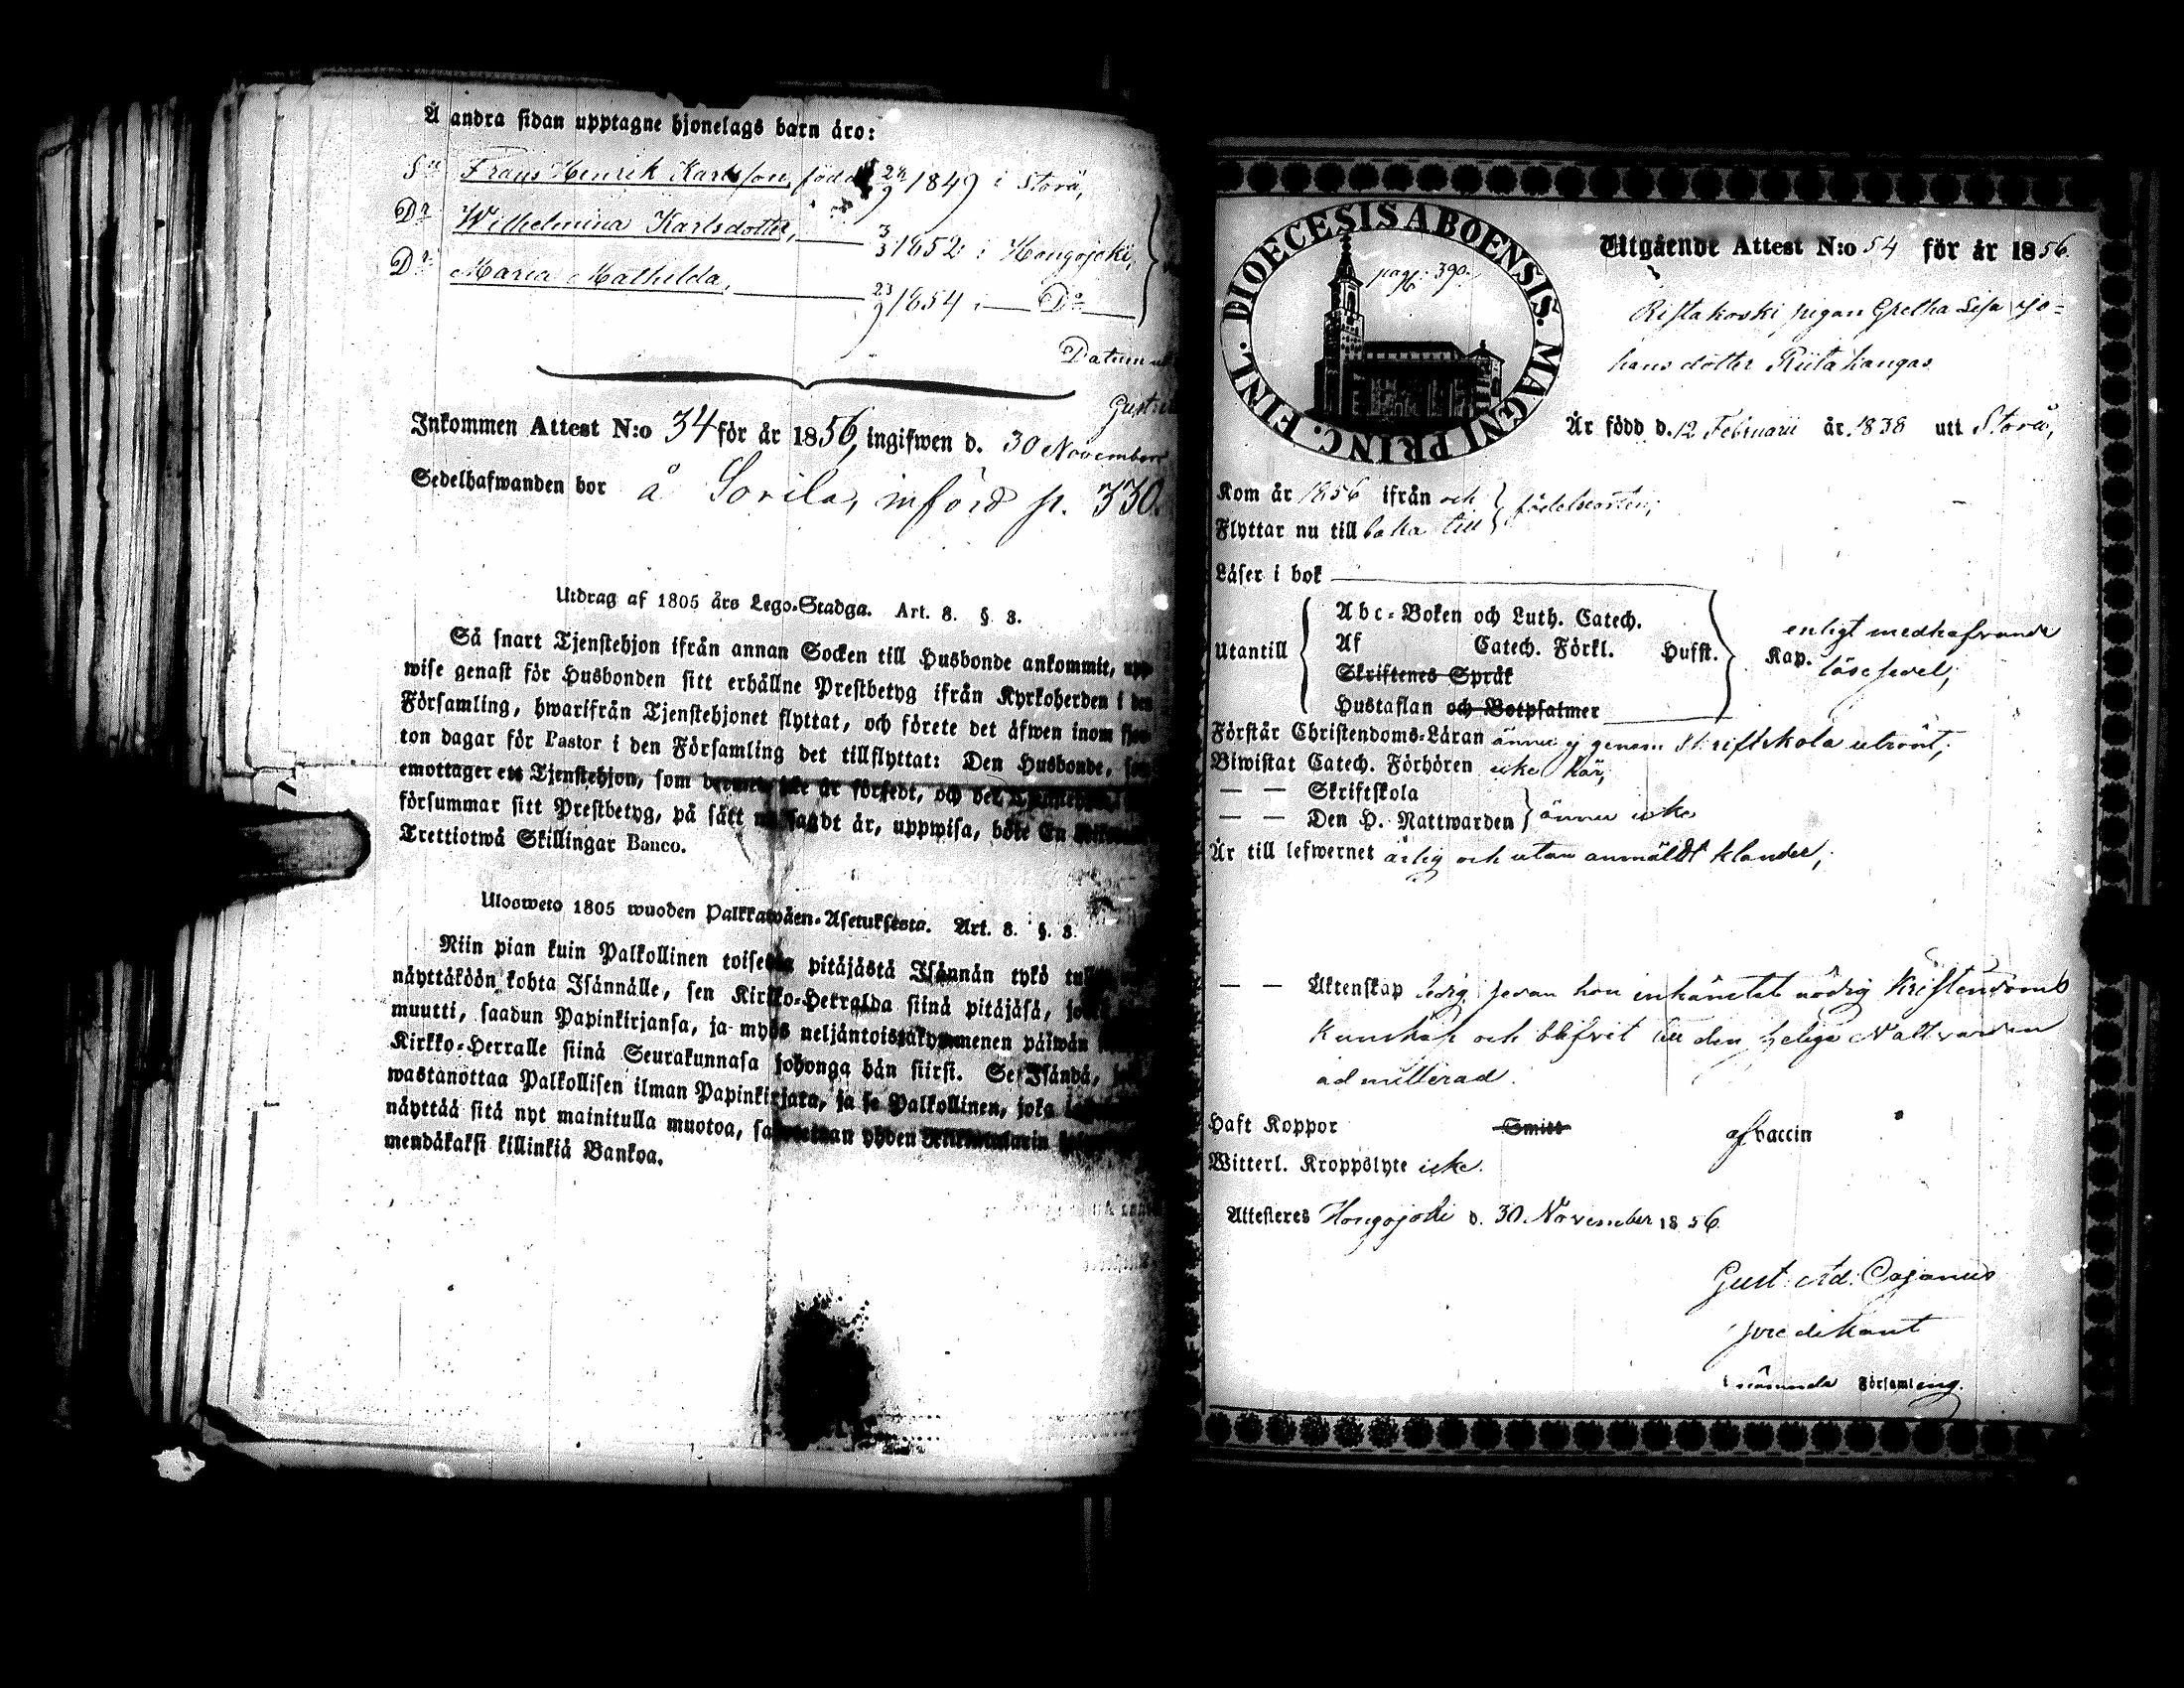 Å andra sidan upptagne hjonelags barn äro:
Sn Frans Henrik Karlsson, född 24/9 1849 i Storå,
Dr Wilhelmina Karlsdotter, 3/3 1852 i Hongojoki,
Dr Maria Mathilda, 23/9 1854 i Do
Datum
Inkommen Attest N:o 34 för år 1856, ingifwen d. 30 November
Sedelhafwanden bor å Sorila, införd p. 330.
Utdrag af 1805 års Lego-Stadga. Art. 8. § 3.
Så snart Tjenstehjon ifrån annan Socken till Husbonde ankommit, upp-
wise genast för Husbonden sitt erhållne Prestbetyg ifrån Kyrkoherden i den
Församling, hwarifrån Tjenstehjonet flyttat, och förete det äfwen inom
ton dagar för Pastor i den Församling det tillflyttat: Den Husbonde,
emottager ett Tjenstehjon, som icke är försedt, och det
försummar sitt Prestbetyg, på sätt sagdt är, uppwisa, böte En
Trettiotwå Skillingar Banco.
Ulosweto 1805 wuoden Palkkawäen-Asetuksesta. Art. 8. §. 3.
Niin pian kuin Palkollinen toisesta pitäjästä Isännän tykö
näyttäköön kohta Isännälle, sen Kirkko-Herralda siinä pitäjäsä,
muutti, saadun Papinkirjansa, ja myös neljäntoistakymmenen päiwän
Kirkko-Herralle siinä Seurakunnasa johonga hän siirsi. Se Isändä,
wastanottaa Palkollisen ilman Papinkirjata, ja se Palkollinen, joka
näyttää sitä nyt mainitulla muotoa, yhden
mendäkaksi killinkiä Bankoa.
DIOECESIS ABOENSIS. MAGNI PRINC. FINL.
pag. 390.
Utgående Attest N:o 54 för år 1856.
Ristakoski pigan Gretha Lisa Jo-
hansdotter Riitahangas
Är född d. 12 Februarii år 1838 uti Storå,
Kom år 1856 ifrån och } födelseorten;
Flyttar nu till baka till
Läser i bok
Abc-Boken och Luth. Catech.
Utantill Af Catech. Förkl. Husst. Kap. enligt medhafvande
Skriftenes Språk läsesedel;
Hustaflan och Botpsalmer
Förstår Christendoms-Läran ännu ej genom Skriftskola utrönt;
Biwistat Catech. Förhören icke här;
— — Skriftskola
— — Den H. Nattwarden } ännu icke
Är till lefwernet ärlig och utan anmäldt klander;
— — Äktenskap ledig sedan hon inhämtat nödig Kristendoms
Kunskap och blifvit till den heliga Nattvarden
admitterad.
Haft Koppor Smitt af vaccin
Witterl. Kroppslyte icke.
Attesteres Hongojoki d. 30 November 1856
Gust. Ad: Cajanus
predikant
i nämnda Församling.